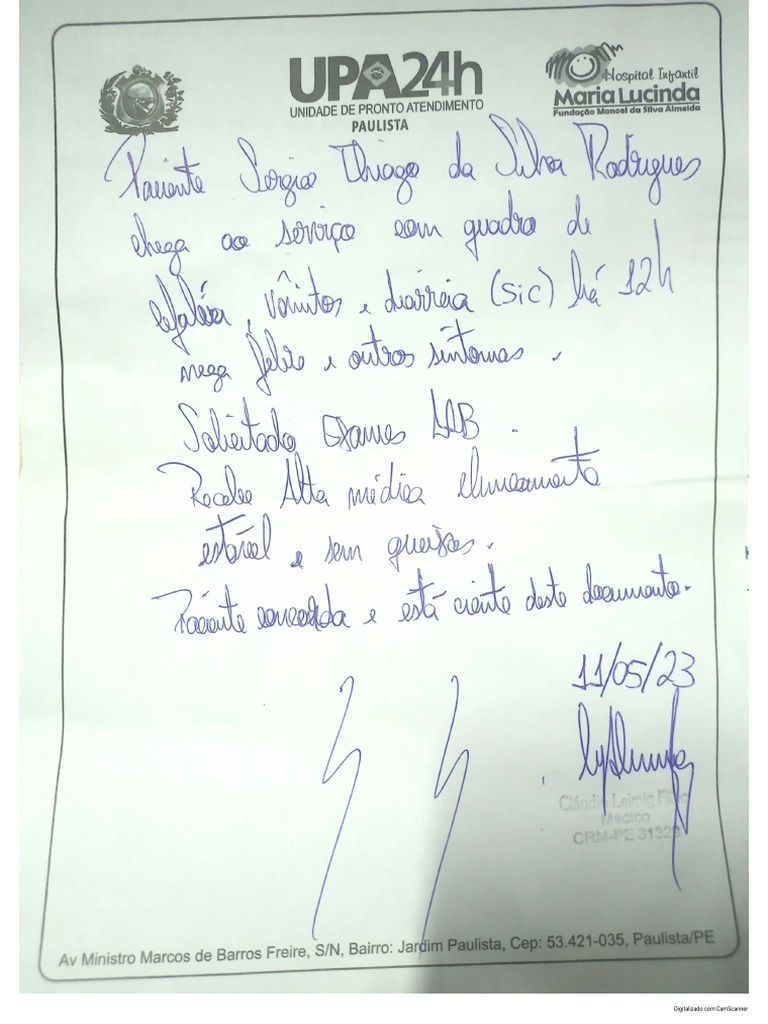 UPA24h
UNIDADE DE PRONTO ATENDIMENTO
PAULISTA
Hospital Infantil
Maria Lucinda
Fundação Manoel da Silva Almeida
Paciente Sergio Thiago da Silva Rodrigues
chega ao serviço com quadro de
cefaléia, vômitos e diarréia (sic) há 12h
nega febre e outros sintomas.
Solicitado Exames LAB.
Recebe Alta médica clinicamente
estável e sem queixas.
Paciente concorda e está ciente deste documento.
11/05/23
Cláudio Leimig Filho
Médico
CRM-PE 3132
Av Ministro Marcos de Barros Freire, S/N, Bairro: Jardim Paulista, Cep: 53.421-035, Paulista/PE
Digitalizado com CamScanner